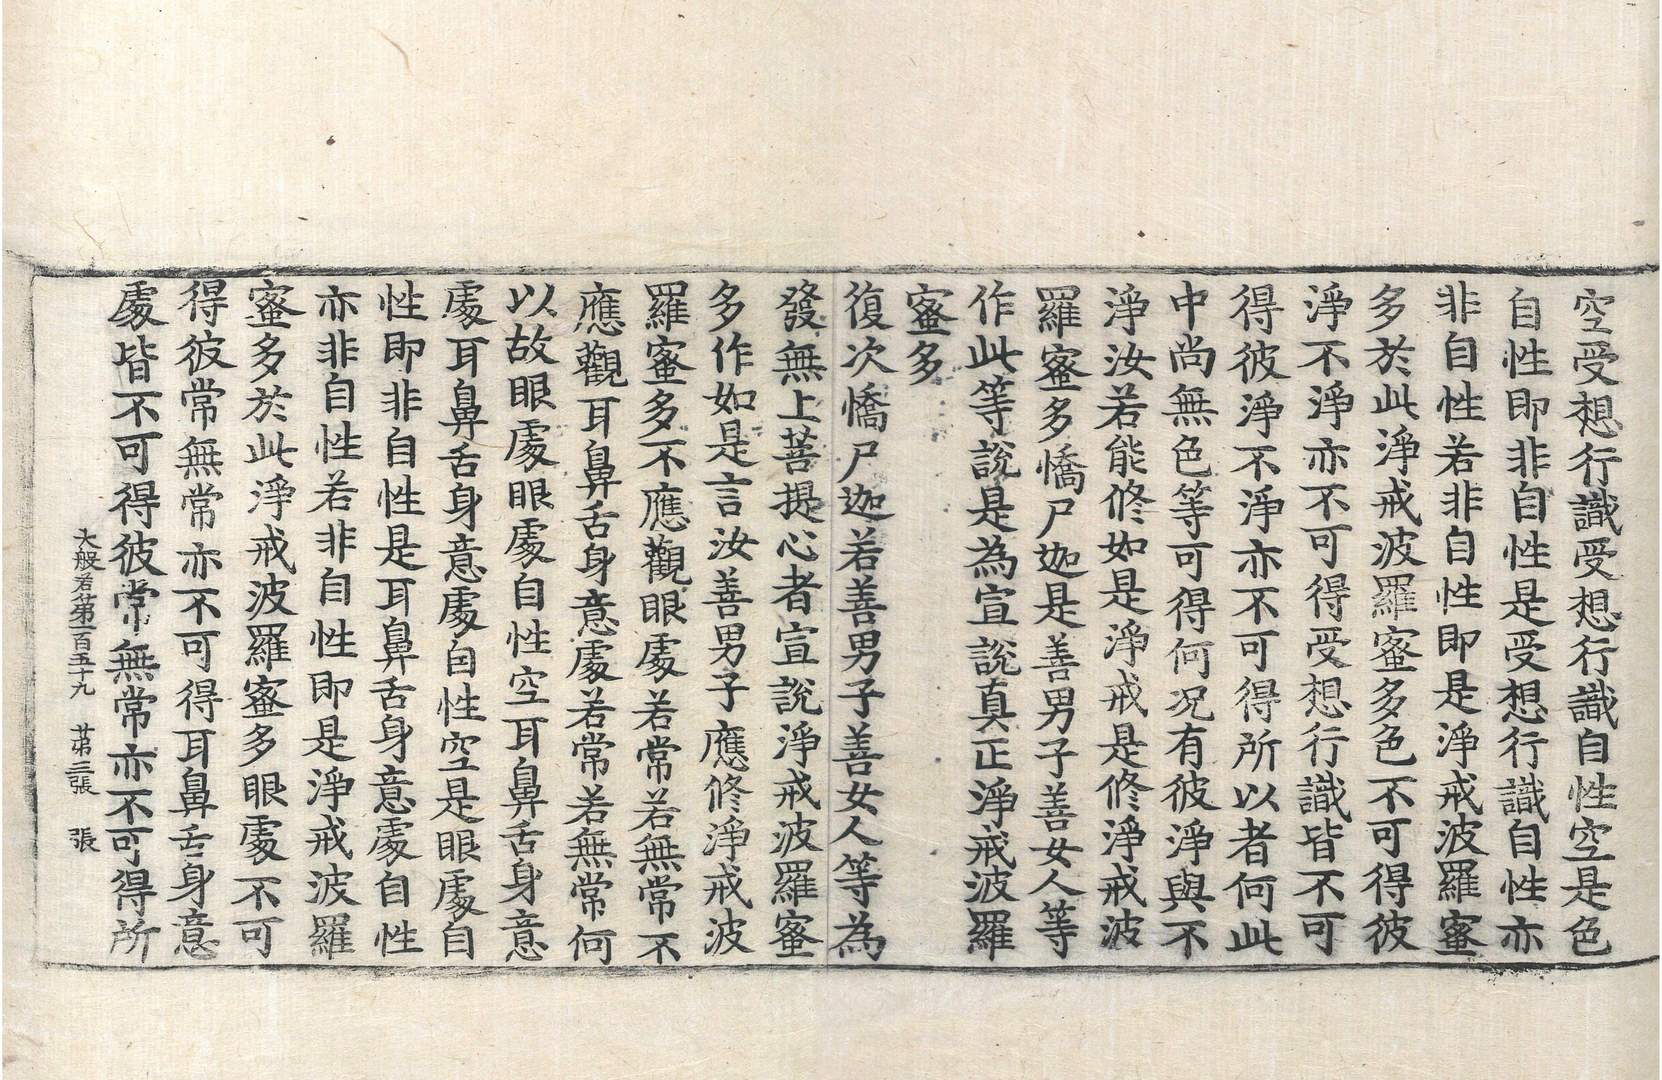 空受想行識受想行識自性空是色
自性即非自性是受想行識自性亦
非自性若非自性即是淨戒波羅蜜
多於此淨戒波羅蜜多色不可得彼
淨不淨亦不可得受想行識皆不可
得彼淨不淨亦不可得所以者何此
中尚無色等可得何况有彼淨與不
淨汝若能修如是淨戒是修淨戒波
羅蜜多憍尸迦是善男子善女人等
作此等說是為宣說真正淨戒波羅
蜜多
復次憍尸迦若善男子善女人等為
發無上菩提心者宣說淨戒波羅蜜
多作如是言汝善男子應修淨戒波
羅蜜多不應觀眼處若常若無常不
應觀耳鼻舌身意處若常若無常何
以故眼處眼處自性空耳鼻舌身意
處耳鼻舌身意處自性空是眼處自
性即非自性是耳鼻舌身意處自性
亦非自性若非自性即是淨戒波羅
蜜多於此淨戒波羅蜜多眼處不可
得彼常無常亦不可得耳鼻舌身意
處皆不可得彼常無常亦不可得所
大般若第一百五十九 第三張 張